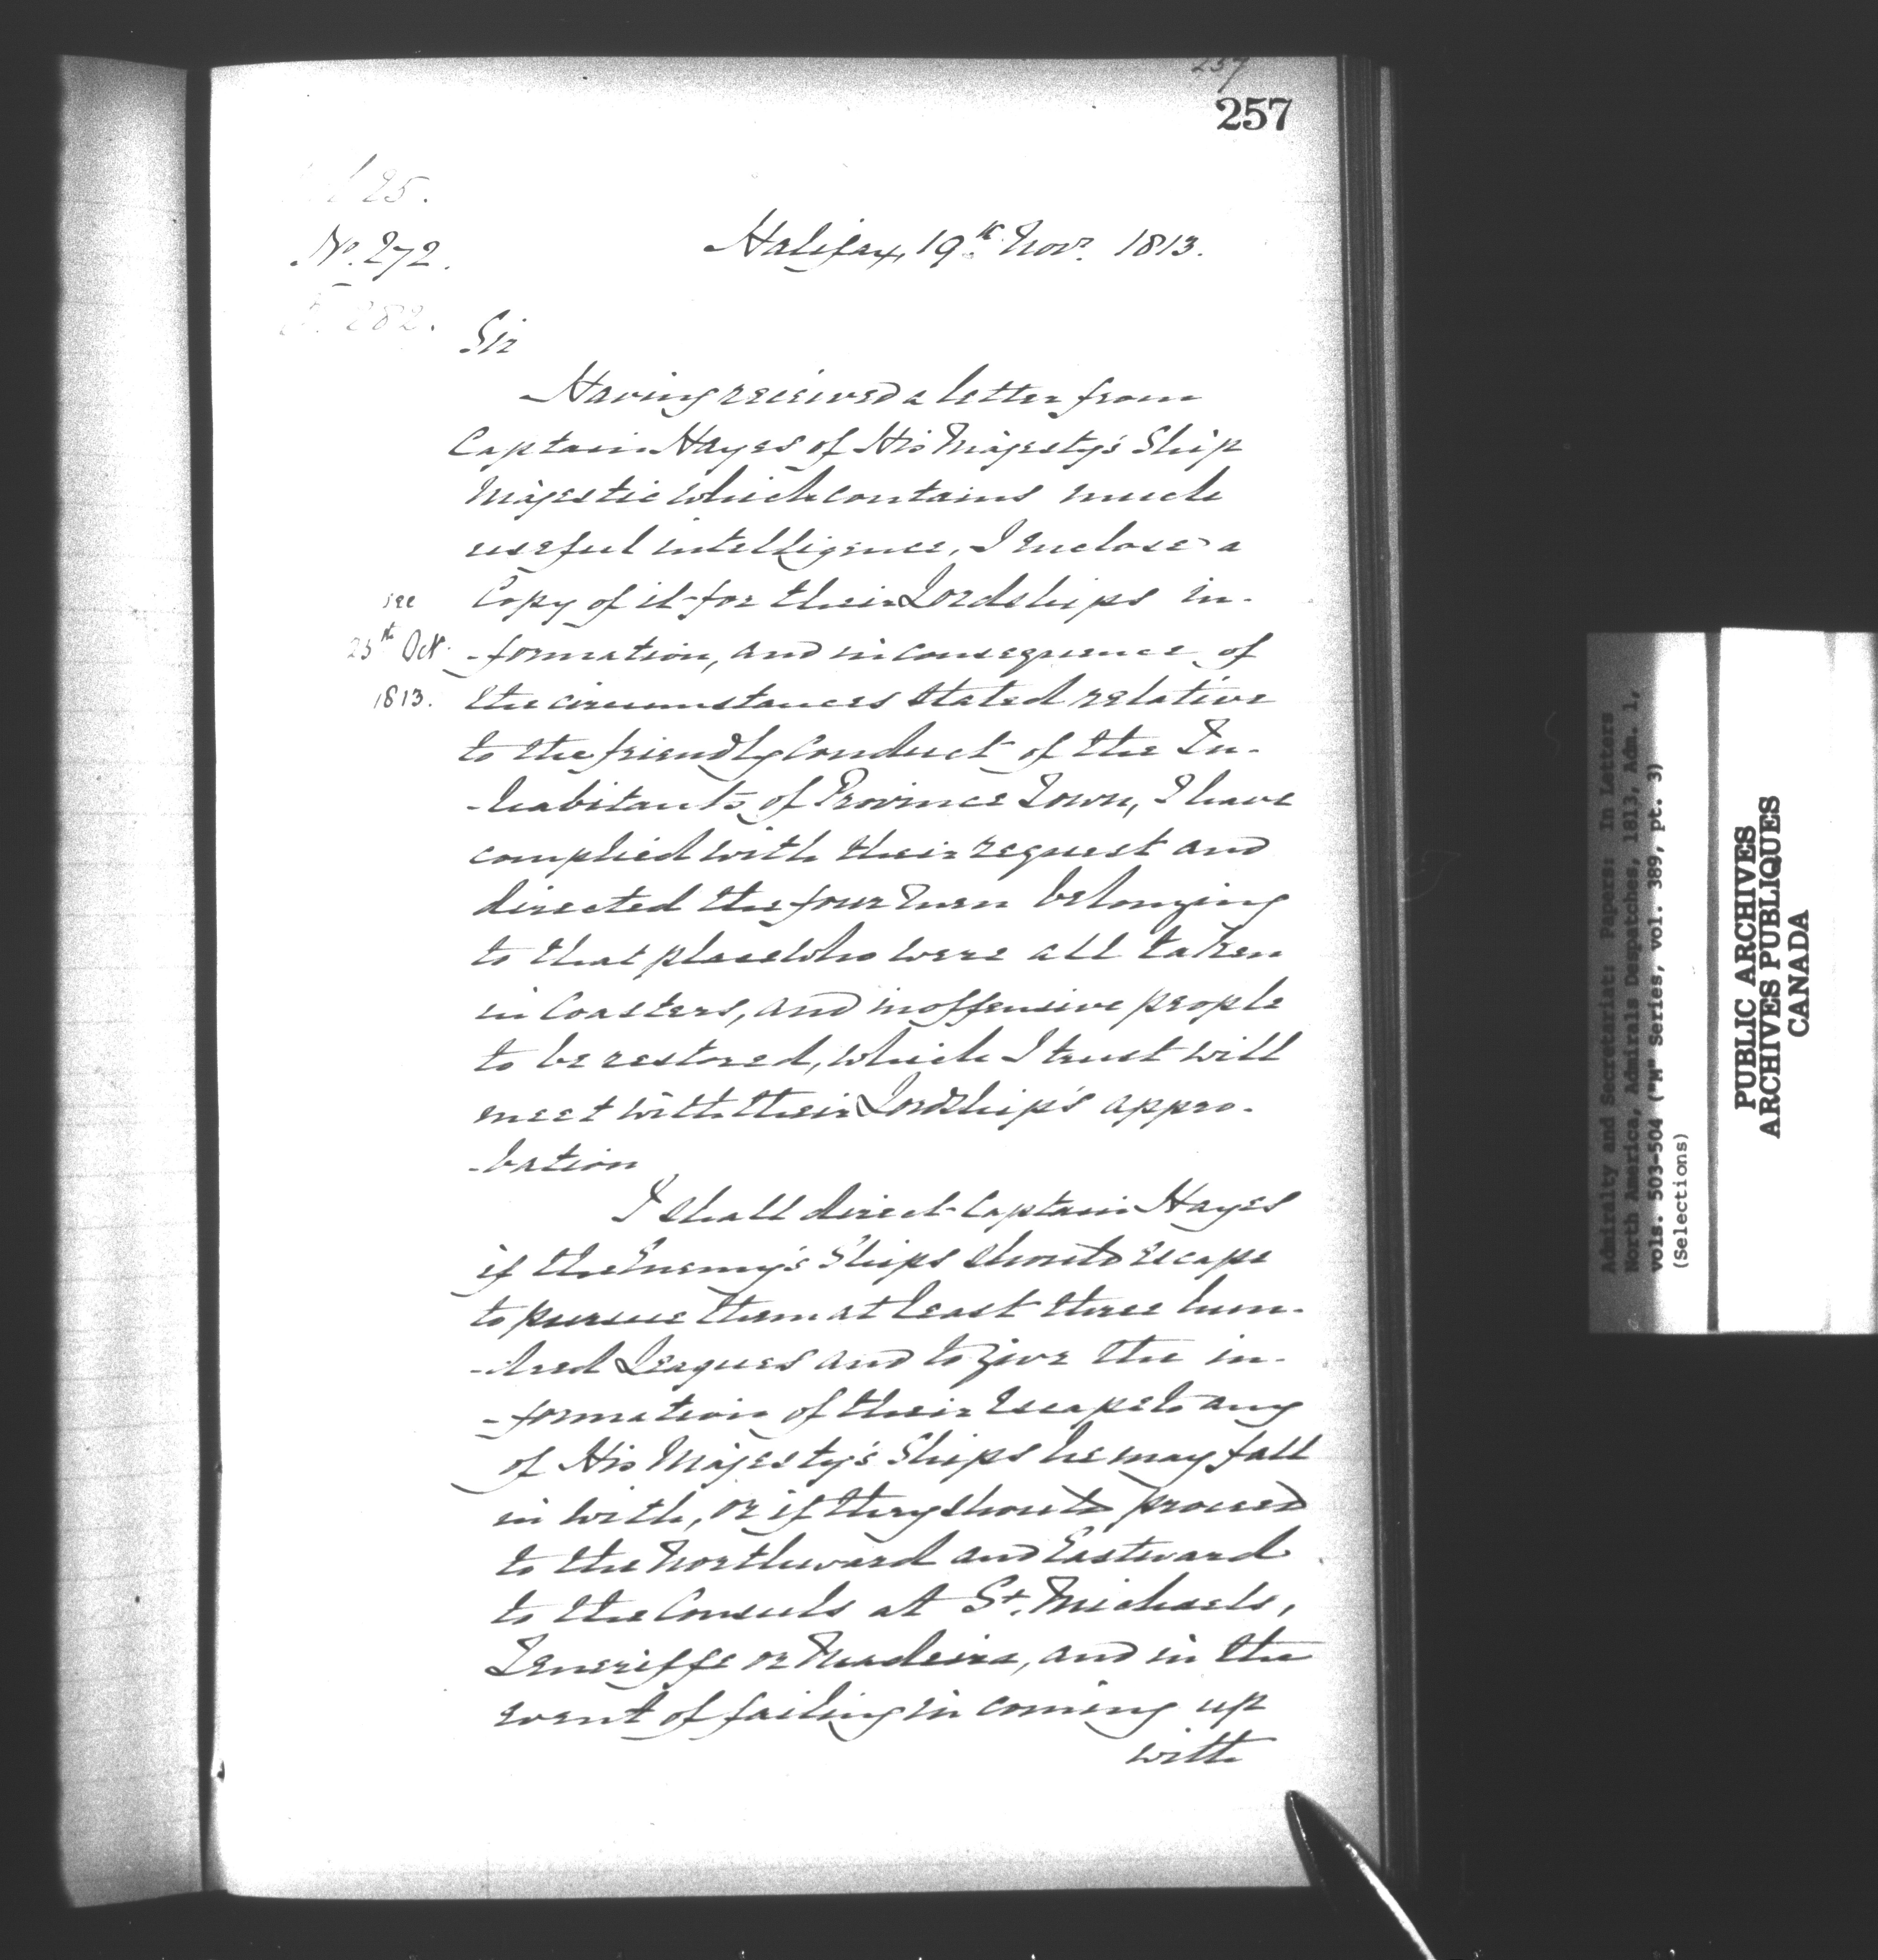 257
257
25.
No. 272.
282.
Halifax, 19th Novr. 1813.
Sir
Having received a letter from
Captain Hayes of His Majesty's Ship
Majestic which contains much
useful intelligence, I enclose a
Copy of it for their Lordships in-
see
25th Oct.
1813.
-formation, and in consequence of
the circumstances stated relative
to the friendly conduct of the In-
-habitants of Province Town, I have
complied with their request and
directed the four men belonging
to that place who were all taken
in Coasters, and inoffensive people
to be restored, which I trust will
meet with their Lordship's appro-
-bation
I shall direct Captain Hayes
if the Enemy's Ships should escape
to pursue them at least three hun-
-dred Leagues and to give the in-
-formation of their escape to any
of His Majesty's Ships he may fall
in with, or if they should proceed
to the Northward and Eastward
to the Consuls at St. Michaels,
Teneriffe or Madeira, and in the
event of failing in coming up
with
Admiralty and Secretariat: Papers: In Letters
North America, Admirals Despatches, 1813, Adm. 1,
vols. 503-504 ("M" Series, vol. 389, pt. 3)
(Selections)
PUBLIC ARCHIVES
ARCHIVES PUBLIQUES
CANADA